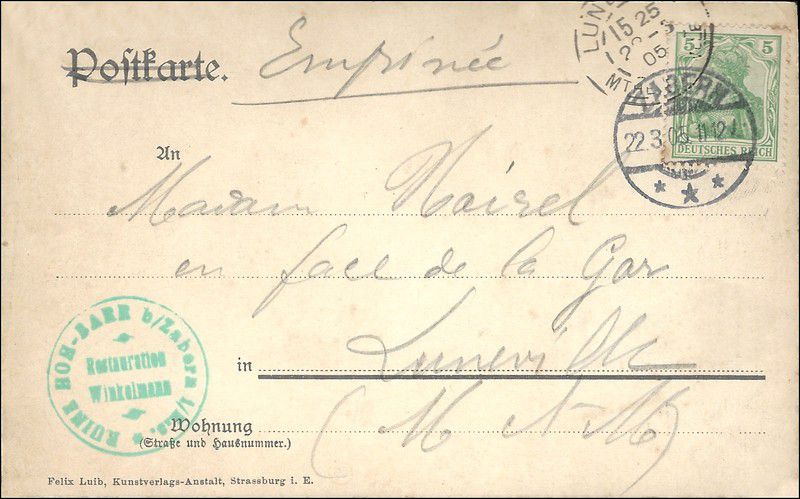 Postkarte.
Imprimé
LUN
15 25
22-3
05
5 5
DEUTSCHES REICH
ZABERN
22.3.05.11-12
An
Madam Noirel
en face de la Gar
in Luneville
(M N M)
Wohnung
(Straße und Hausnummer.)
RUINE HOH-BARR b/Zabern i/Els.
Restauration
Winkelmann
Felix Luib, Kunstverlags-Anstalt, Strassburg i. E.